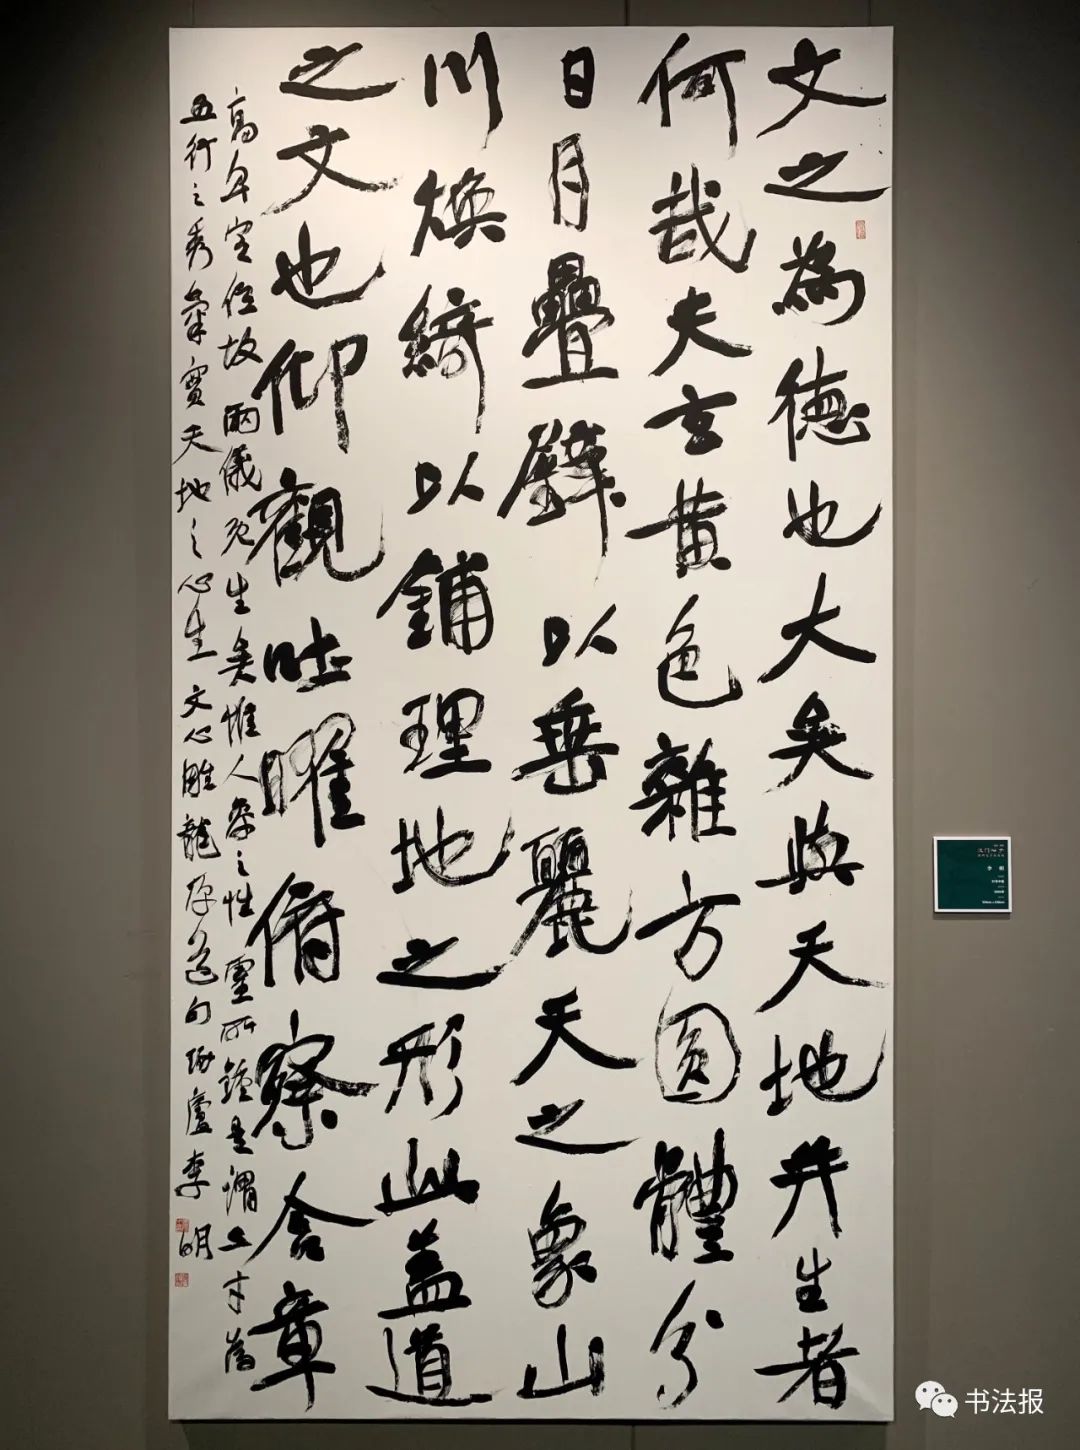 文之為德也大矣與天地并生者
何哉夫玄黄色雜方圓體分
日月疊璧以垂麗天之象山
川煥綺以鋪理地之形此蓋道
之文也仰觀吐曜俯察含章
高卑定位故兩儀既生矣惟人參之性靈所鍾是謂三才為
五行之秀氣實天地之心生文心雕龍原道句廬李明
李明
书法报